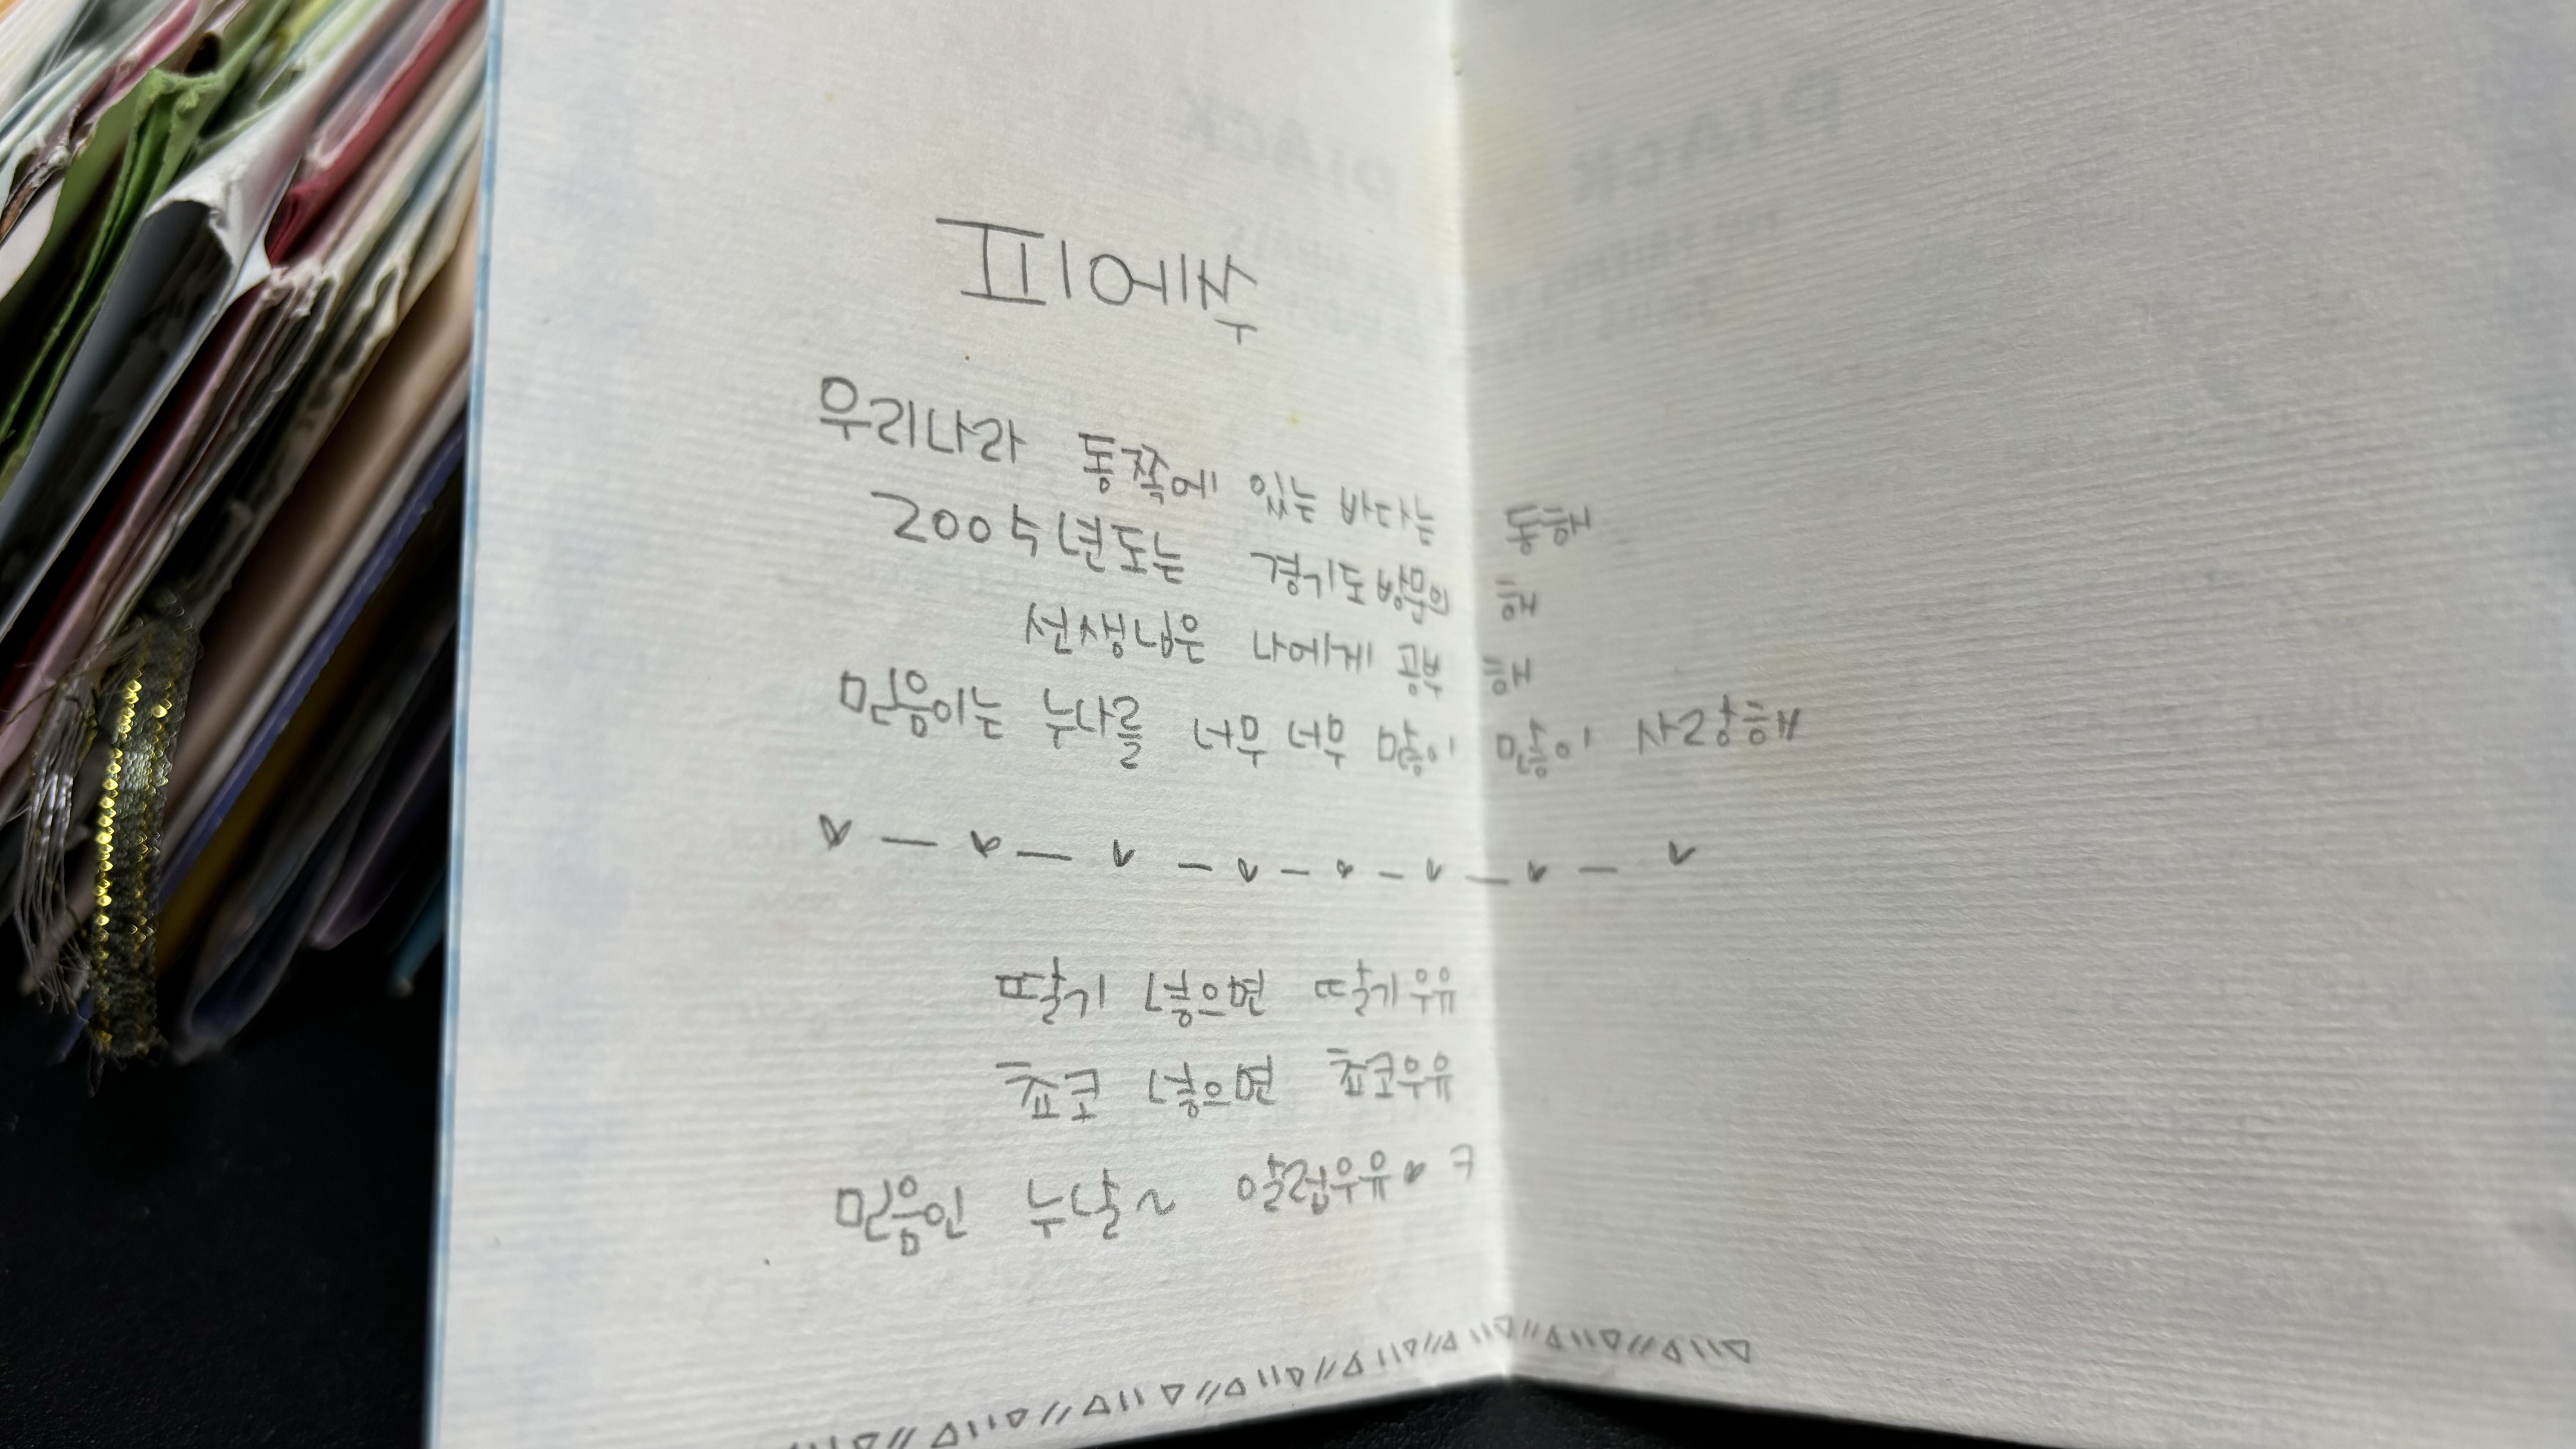 피에쑤
우리나라 동쪽에 있는 바다는 동해
2005년도는 경기도 방문의 해
선생님은 나에게 공부 해
믿음이는 누나를 너무 너무 많이 많이 사랑해
딸기 넣으면 딸기우유
쵸코 넣으면 쵸코우유
믿음인 누날~ 알럽우유♥ ㅋ
PIACK
PIACK